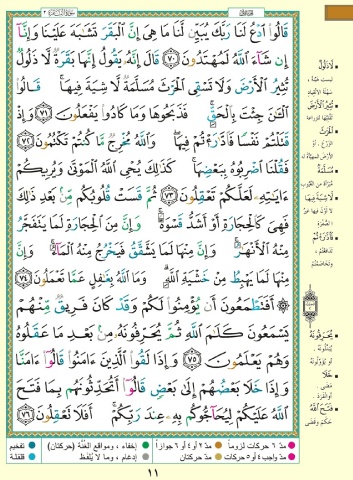 قَالُوا ادْعُ لَنَا رَبَّكَ يُبَيِّن لَّنَا مَا هِيَ إِنَّ الْبَقَرَ تَشَابَهَ عَلَيْنَا وَإِنَّا
إِن شَاءَ اللَّهُ لَمُهْتَدُونَ ٧٠ قَالَ إِنَّهُ يَقُولُ إِنَّهَا بَقَرَةٌ لَّا ذَلُولٌ
تُثِيرُ الْأَرْضَ وَلَا تَسْقِي الْحَرْثَ مُسَلَّمَةٌ لَّا شِيَةَ فِيهَا قَالُوا
الْآنَ جِئْتَ بِالْحَقِّ فَذَبَحُوهَا وَمَا كَادُوا يَفْعَلُونَ ٧١ وَإِذْ
قَتَلْتُمْ نَفْسًا فَادَّارَأْتُمْ فِيهَا وَاللَّهُ مُخْرِجٌ مَّا كُنتُمْ تَكْتُمُونَ ٧٢
فَقُلْنَا اضْرِبُوهُ بِبَعْضِهَا كَذَلِكَ يُحْيِ اللَّهُ الْمَوْتَى وَيُرِيكُمْ
آيَاتِهِ لَعَلَّكُمْ تَعْقِلُونَ ٧٣ ثُمَّ قَسَتْ قُلُوبُكُم مِّن بَعْدِ ذَلِكَ
فَهِيَ كَالْحِجَارَةِ أَوْ أَشَدُّ قَسْوَةً وَإِنَّ مِنَ الْحِجَارَةِ لَمَا يَتَفَجَّرُ
مِنْهُ الْأَنْهَارُ وَإِنَّ مِنْهَا لَمَا يَشَّقَّقُ فَيَخْرُجُ مِنْهُ الْمَاءُ وَإِنَّ
مِنْهَا لَمَا يَهْبِطُ مِنْ خَشْيَةِ اللَّهِ وَمَا اللَّهُ بِغَافِلٍ عَمَّا تَعْمَلُونَ ٧٤
أَفَتَطْمَعُونَ أَن يُؤْمِنُوا لَكُمْ وَقَدْ كَانَ فَرِيقٌ مِّنْهُمْ
يَسْمَعُونَ كَلَامَ اللَّهِ ثُمَّ يُحَرِّفُونَهُ مِن بَعْدِ مَا عَقَلُوهُ
وَهُمْ يَعْلَمُونَ ٧٥ وَإِذَا لَقُوا الَّذِينَ آمَنُوا قَالُوا آمَنَّا
وَإِذَا خَلَا بَعْضُهُمْ إِلَى بَعْضٍ قَالُوا أَتُحَدِّثُونَهُم بِمَا فَتَحَ
اللَّهُ عَلَيْكُمْ لِيُحَاجُّوكُم بِهِ عِندَ رَبِّكُمْ أَفَلَا تَعْقِلُونَ ٧٦
لا ذَلُولٌ
تُثِيرُ الْأَرْضَ
مُسَلَّمَةٌ
لَا شِيَةَ فِيهَا
فَادَّارَأْتُمْ
يُحَرِّفُونَهُ
خَلَا
فَتَحَ اللَّهُ
حكم وقضى
مدّ ٦ حركات لزوماً مدّ ٢ أو ٤ أو ٦ جوازاً إخفاء، ومواقع الغنّة (حركتان) تفخيم
مدّ واجب ٤ أو ٥ حركات مدّ حركتان إدغام، وما لا يُلفظ قلقلة
١١